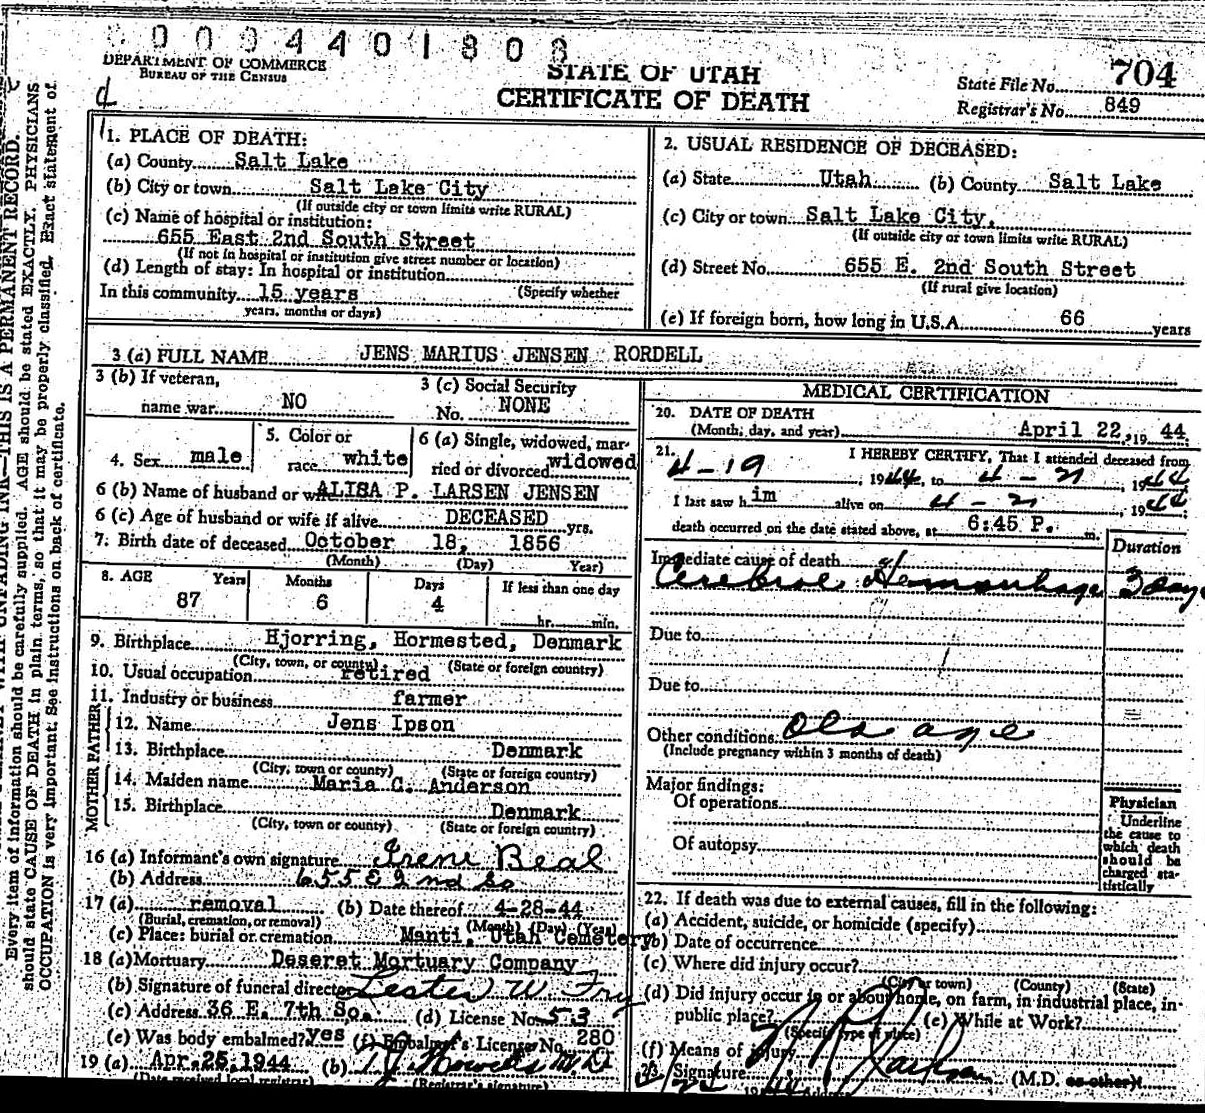 0094401808
DEPARTMENT OF COMMERCE
BUREAU OF THE CENSUS
STATE OF UTAH
CERTIFICATE OF DEATH
704
State File No.
Registrar's No. 849
1. PLACE OF DEATH:
(a) County Salt Lake
(b) City or town Salt Lake City
(If outside city or town limits write RURAL)
(c) Name of hospital or institution:
655 East 2nd South Street
(If not in hospital or institution give street number or location)
(d) Length of stay: In hospital or institution
In this community 15 years (Specify whether
years, months or days)
2. USUAL RESIDENCE OF DECEASED:
(a) State Utah (b) County Salt Lake
(c) City or town Salt Lake City,
(If outside city or town limits write RURAL)
(d) Street No. 655 E. 2nd South Street
(If rural give location)
(e) If foreign born, how long in U.S.A. 66 years
3 (a) FULL NAME JENS MARIUS JENSEN RORDELL
3 (b) If veteran,
name war NO
3 (c) Social Security
No. NONE
4. Sex male
5. Color or
race white
6 (a) Single, widowed, mar-
ried or divorced widowed
6 (b) Name of husband or wife ALISA P. LARSEN JENSEN
6 (c) Age of husband or wife if alive DECEASED yrs.
7. Birth date of deceased October 18, 1856
(Month) (Day) Year)
8. AGE Years Months Days If less than one day
87 6 4 hr. min.
9. Birthplace Hjorring, Hormested, Denmark
(City, town, or county) (State or foreign country)
10. Usual occupation retired
11. Industry or business farmer
FATHER
12. Name Jens Ipson
13. Birthplace Denmark
(City, town or county) (State or foreign country)
MOTHER
14. Maiden name Maria C. Anderson
15. Birthplace Denmark
(City, town or county) (State or foreign country)
16 (a) Informant's own signature Irene Beal
(b) Address 655 E 2nd So
17 (a) removal (b) Date thereof 4-28-44
(Burial, cremation, or removal) (Month) (Day) (Year)
(c) Place: burial or cremation Manti, Utah Cemetery
18 (a) Mortuary Deseret Mortuary Company
(b) Signature of funeral director Lester W Fry
(c) Address 36 E. 7th So. (d) License No. 53
(e) Was body embalmed? yes (f) Embalmer's License No. 280
19 (a) Apr. 25, 1944 (b) T J Howells M.D
(Date received local registrar) (Registrar's signature)
MEDICAL CERTIFICATION
20. DATE OF DEATH
(Month, day, and year) April 22, 19 44.
21. I HEREBY CERTIFY, That I attended deceased from
4-19, 1944, to 4-21, 1944
I last saw h im alive on 4-21, 1944
death occurred on the date stated above, at 6:45 P. m.
Duration
Immediate cause of death
Cerebral Hemorrhage 3 days
Due to
Due to
Other conditions Old age
(Include pregnancy within 3 months of death)
Major findings:
Of operations
Of autopsy
Physician
Underline
the cause to
which death
should be
charged sta-
tistically
22. If death was due to external causes, fill in the following:
(a) Accident, suicide, or homicide (specify)
(b) Date of occurrence
(c) Where did injury occur?
(City or town) (County) (State)
(d) Did injury occur in or about home, on farm, in industrial place, in
public place? (e) While at Work?
(Specify type of place)
(f) Means of injury
23. Signature (M.D. or other)
Every item of information should be carefully supplied. AGE should be stated EXACTLY. PHYSICIANS
should state CAUSE OF DEATH in plain terms, so that it may be properly classified. Exact statement of
OCCUPATION is very important. See instructions on back of certificate.
UNFADING INK—THIS IS A PERMANENT RECORD.